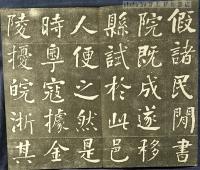 假諸民間書
院既成遂移
縣試於此邑
人便之然是
時粵寇據金
陵擾皖浙其